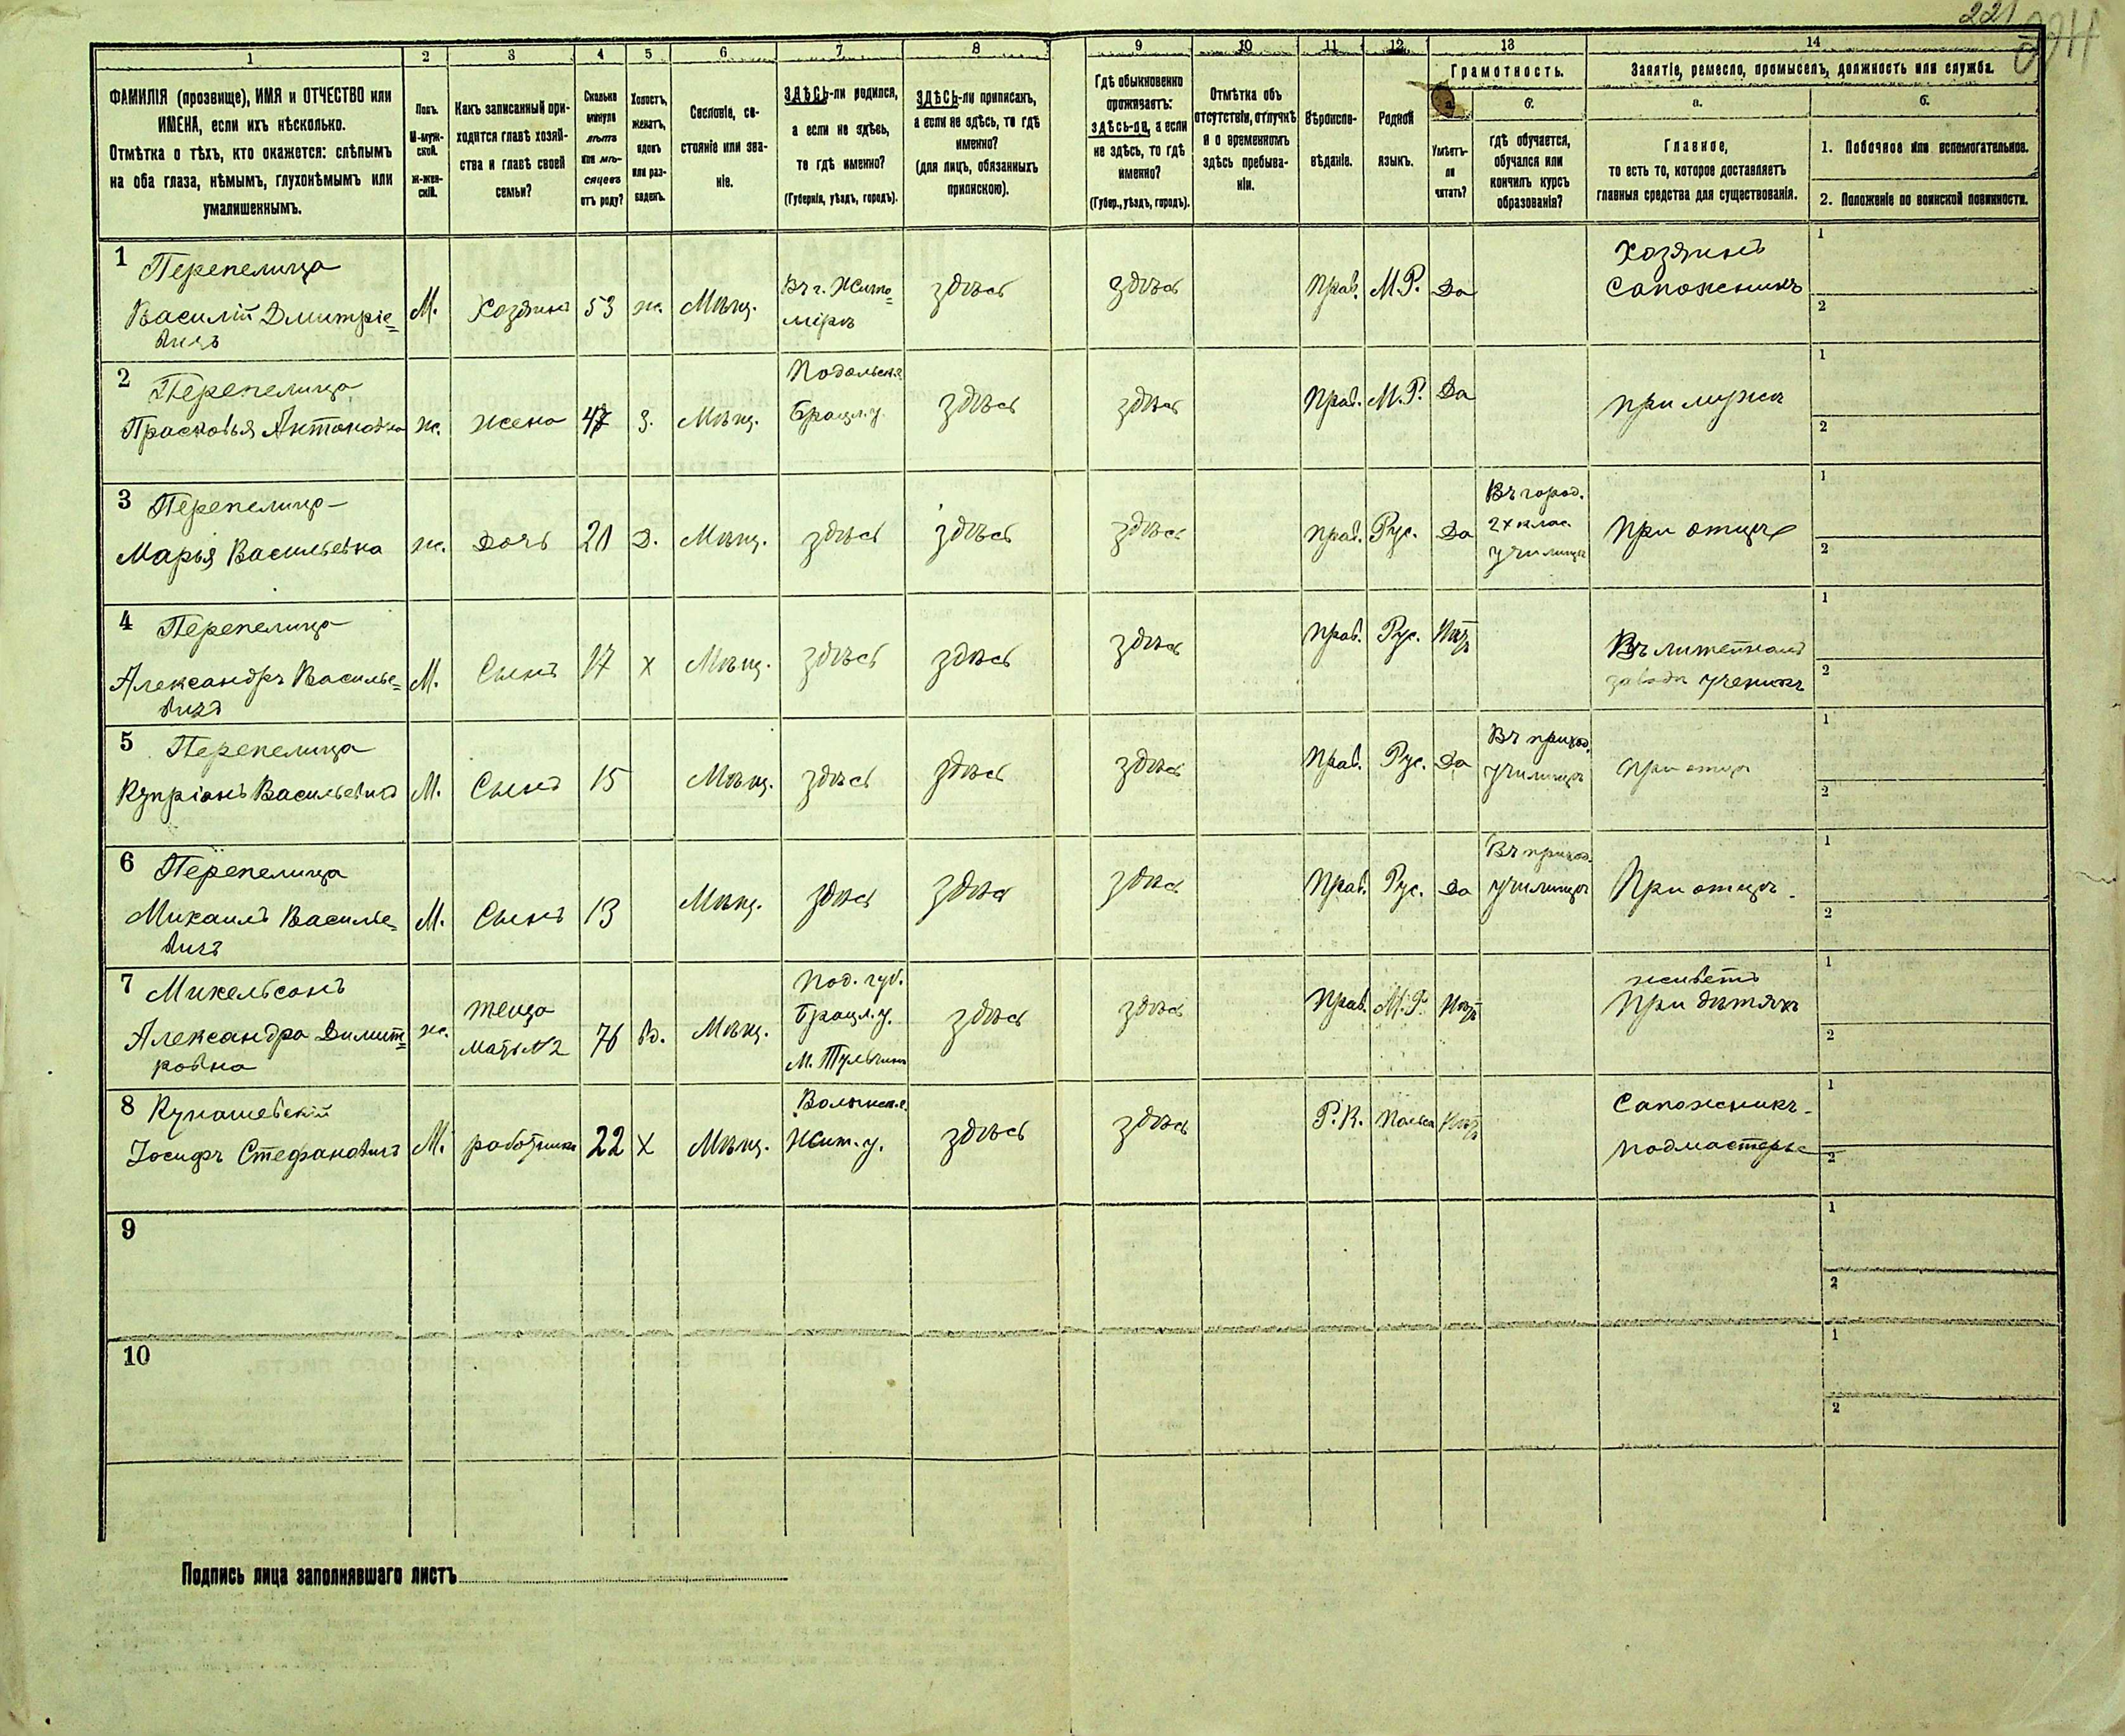 221
1 2 3 4 5 6 7 8 9 10 11 12 13 14
ФАМИЛІЯ (прозвище), ИМЯ и ОТЧЕСТВО или
ИМЕНА, если ихъ нѣсколько.
Отмѣтка о тѣхъ, кто окажется: слѣпымъ
на оба глаза, нѣмымъ, глухонѣмымъ или
умалишеннымъ.
Полъ.
М-муж-
ской.
ж-жен-
скій.
Какъ записанный при-
ходится главѣ хозяй-
ства и главѣ своей
семьи?
Сколько
минуло
лѣтъ
или мѣ-
сяцевъ
отъ роду?
Холостъ,
женатъ,
вдовъ
или раз-
веденъ.
Сословіе, со-
стояніе или зва-
ніе.
ЗДѢСЬ-ли родился,
а если не здѣсь,
то гдѣ именно?
(Губернія, уѣздъ, городъ).
ЗДѢСЬ-ли приписанъ,
а если не здѣсь, то гдѣ
именно?
(для лицъ, обязанныхъ
припискою).
Гдѣ обыкновенно
проживаетъ:
здѣсь-ли, а если
не здѣсь, то гдѣ
именно?
(Губер., уѣздъ, городъ).
Отмѣтка объ
отсутствіи, отлучкѣ
и о временномъ
здѣсь пребыва-
ніи.
Вѣроиспо-
вѣданіе.
Родной
языкъ.
Грамотность.
а.
Умѣетъ-
ли
читать?
б.
гдѣ обучается,
обучался или
кончилъ курсъ
образованія?
Занятіе, ремесло, промыселъ, должность или служба.
а.
Главное,
то есть то, которое доставляетъ
главныя средства для существованія.
б.
1. Побочное или вспомогательное.
2. Положеніе по воинской повинности.
1 Перепелица
Василій Дмитріе=
вичъ
М. Хозяинъ 53 ж. Мѣщ.
Въ г. Жито=
мірѣ
здѣсь здѣсь Прав. М.Р. Да
Хозяинъ
Сапожникъ
1
2
2 Перепелица
Прасковья Антоновна
ж. жена 47 З. Мѣщ.
Подольск.г.
Брацл.у.
здѣсь здѣсь Прав. М.Р. Да
при мужѣ
1
2
3 Перепелица
Марья Васильевна
ж. Дочь 21 Д. Мѣщ. здѣсь здѣсь здѣсь прав. Рус. Да
Въ город.
2х клас.
училищѣ
при отцѣ
1
2
4 Перепелица
Александръ Василье=
вичъ
М. Сынъ 17 х Мѣщ. здѣсь здѣсь здѣсь прав. Рус. Нѣтъ
Въ литейномъ
заводѣ ученикъ
1
2
5 Перепелица
Купріянъ Васильевичъ
М. Сынъ 15 Мѣщ. здѣсь здѣсь здѣсь Прав. Рус. Да
Въ приход.
училищѣ
при отцѣ
1
2
6 Перепелица
Михаилъ Василье=
вичъ
М. Сынъ 13 Мѣщ. здѣсь здѣсь здѣсь Прав. Рус. Да
Въ приход.
училищѣ
При отцѣ.
1
2
7 Микельсонъ
Александра Димит=
ровна
ж.
теща
мать №2
76 вд. Мѣщ.
Под. губ.
Брацл.у.
М. Тульчинъ
здѣсь здѣсь Прав. М.Р. Нѣтъ
живетъ
При дѣтяхъ
1
2
8 Кунашевскій
Іосифъ Стефановичъ
М. работникъ 22 х Мѣщ.
Волынск.г.
Жит.у.
здѣсь здѣсь Р.К. Польск Нѣтъ
Сапожникъ-
подмастерье
1
2
9
1
2
10
1
2
Подпись лица заполнявшаго листъ